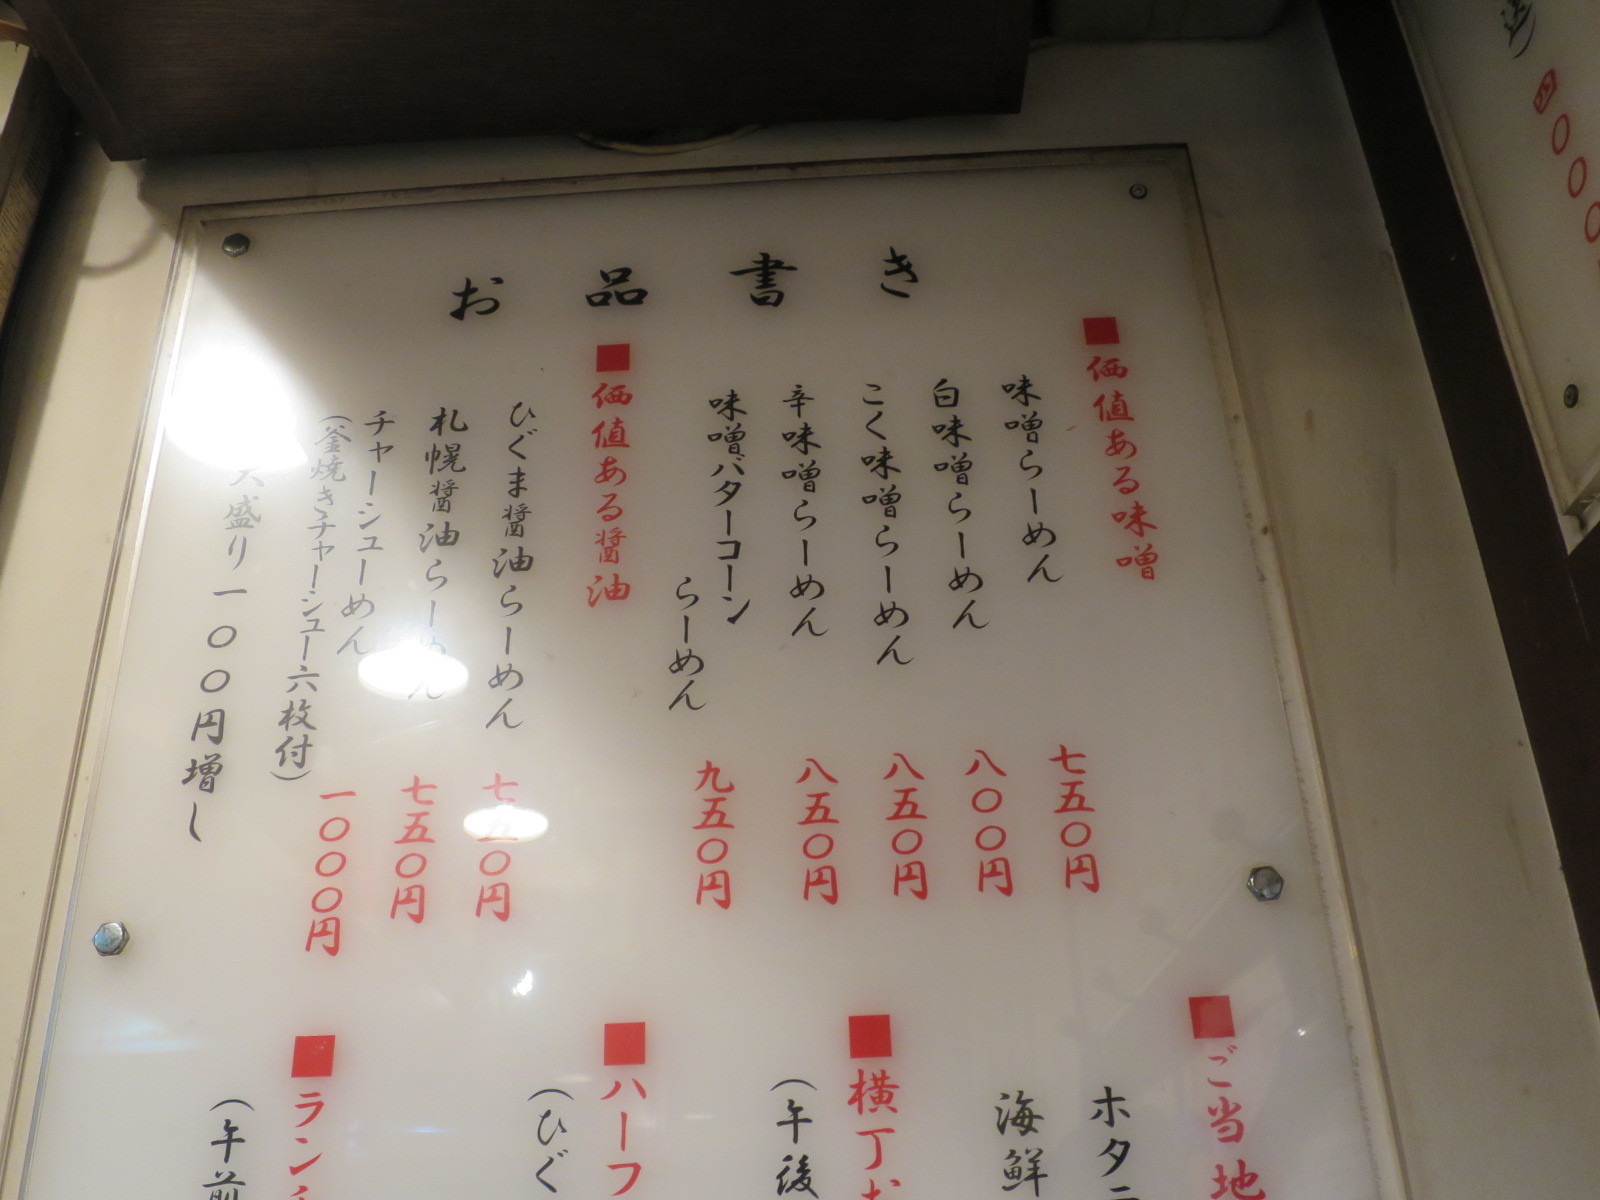 お品書き
■価値ある味噌
味噌らーめん 七五〇円
白味噌らーめん 八〇〇円
こく味噌らーめん 八五〇円
辛味噌らーめん 八五〇円
味噌バターコーン
らーめん 九五〇円
■価値ある醤油
ひぐま醤油らーめん 七五〇円
札幌醤油らーめん 七五〇円
チャーシューめん 一〇〇〇円
(釜焼きチャーシュー六枚付)
大盛り一〇〇円増し
■ご当地
ホタ
海鮮
■横丁お
(午後
■ハーフ
(ひぐ
■ラン
(午前
四〇〇〇